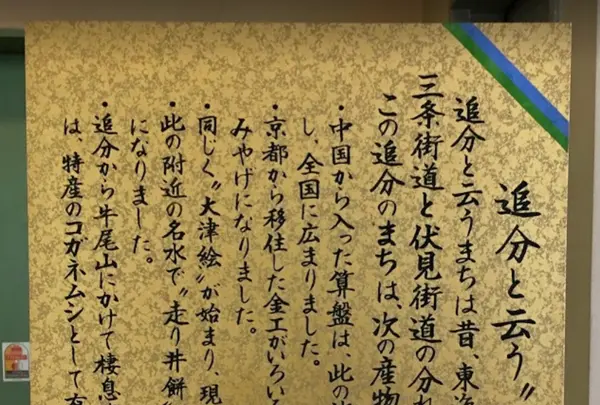 追分と云う〃
追分と云うまちは昔、東海
三条街道と伏見街道の分れ
この追分のまちは、次の産物
・中国から入った算盤は、此の
し、全国に広まりました。
・京都から移住した金工がいろいろ
みやげになりました。
・同じく〝大津絵〟が始まり、現
・此の附近の名水で〝走り井餅
になりました。
・追分から牛尾山にかけて棲息
は、特産のコガネムシとして有